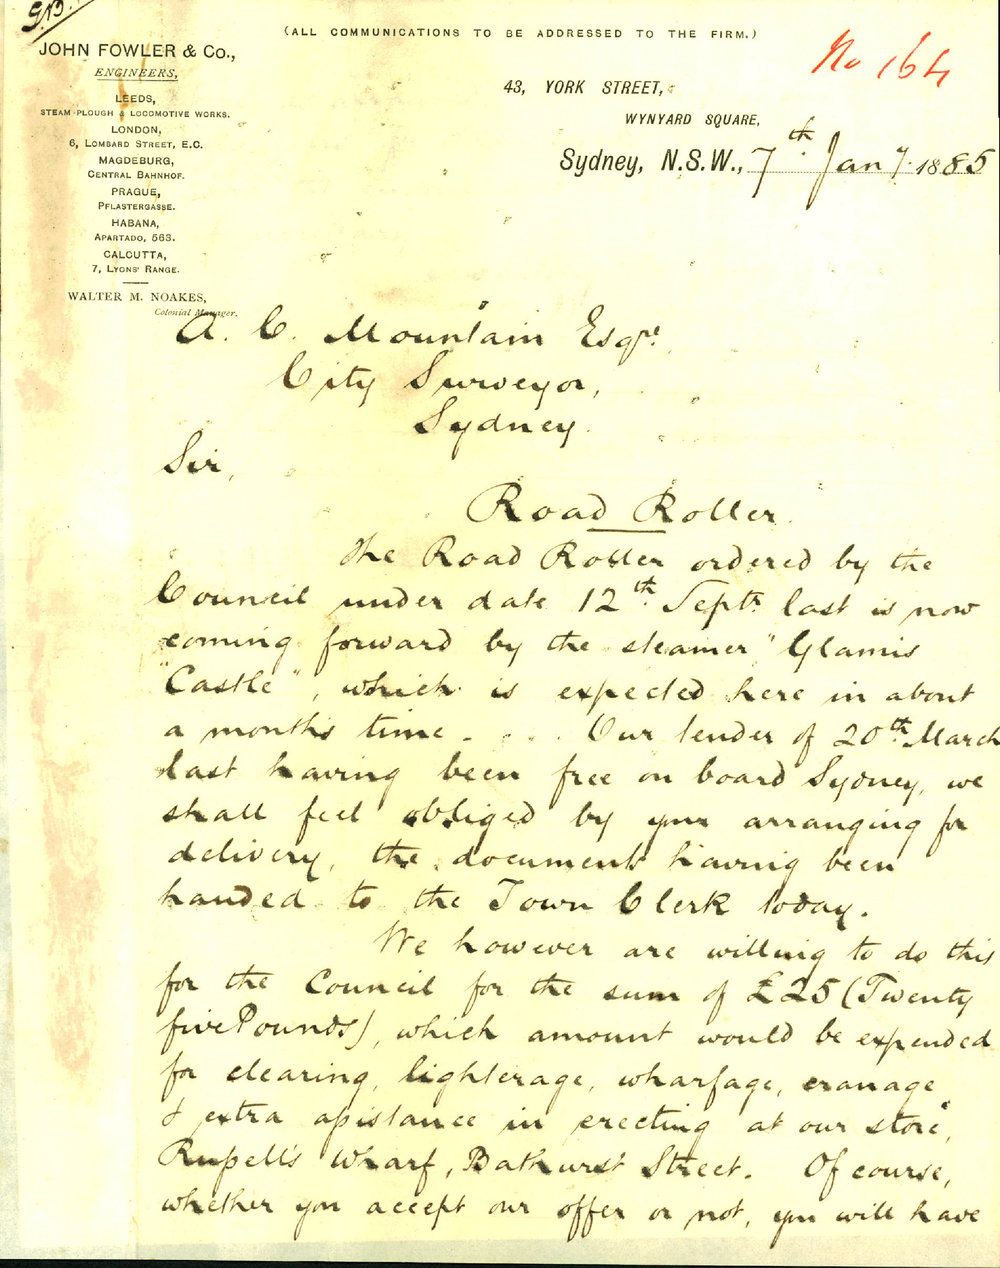 (ALL COMMUNICATIONS TO BE ADDRESSED TO THE FIRM.)
No 164
JOHN FOWLER & Co.,
ENGINEERS,
LEEDS,
STEAM-PLOUGH & LOCOMOTIVE WORKS.
LONDON,
6, LOMBARD STREET, E.C.
MAGDEBURG,
CENTRAL BAHNHOF.
PRAGUE,
PFLASTERGASSE.
HABANA,
APARTADO, 563.
CALCUTTA,
7, LYONS' RANGE.
WALTER M. NOAKES,
Colonial Manager.
43, YORK STREET,
WYNYARD SQUARE,
Sydney, N.S.W., 7th Jany. 1885
A. C. Mountain Esqre.
City Surveyor,
Sydney.
Sir,
Road Roller.
The Road Roller ordered by the
Council under date 12th Septr. last is now
coming forward by the steamer "Glamis
"Castle", which is expected here in about
a months time. . . . Our tender of 20th March
last having been free on board Sydney, we
shall feel obliged by your arranging for
delivery, the documents having been
handed to the Town Clerk today.
We however are willing to do this
for the Council for the sum of £25 (Twenty
five Pounds), which amount would be expended
for clearing, lighterage, wharfage, cranage,
& extra assistance in erecting at our store,
Russell's Wharf, Bathurst Street. Of course,
whether you accept our offer or not, you will have